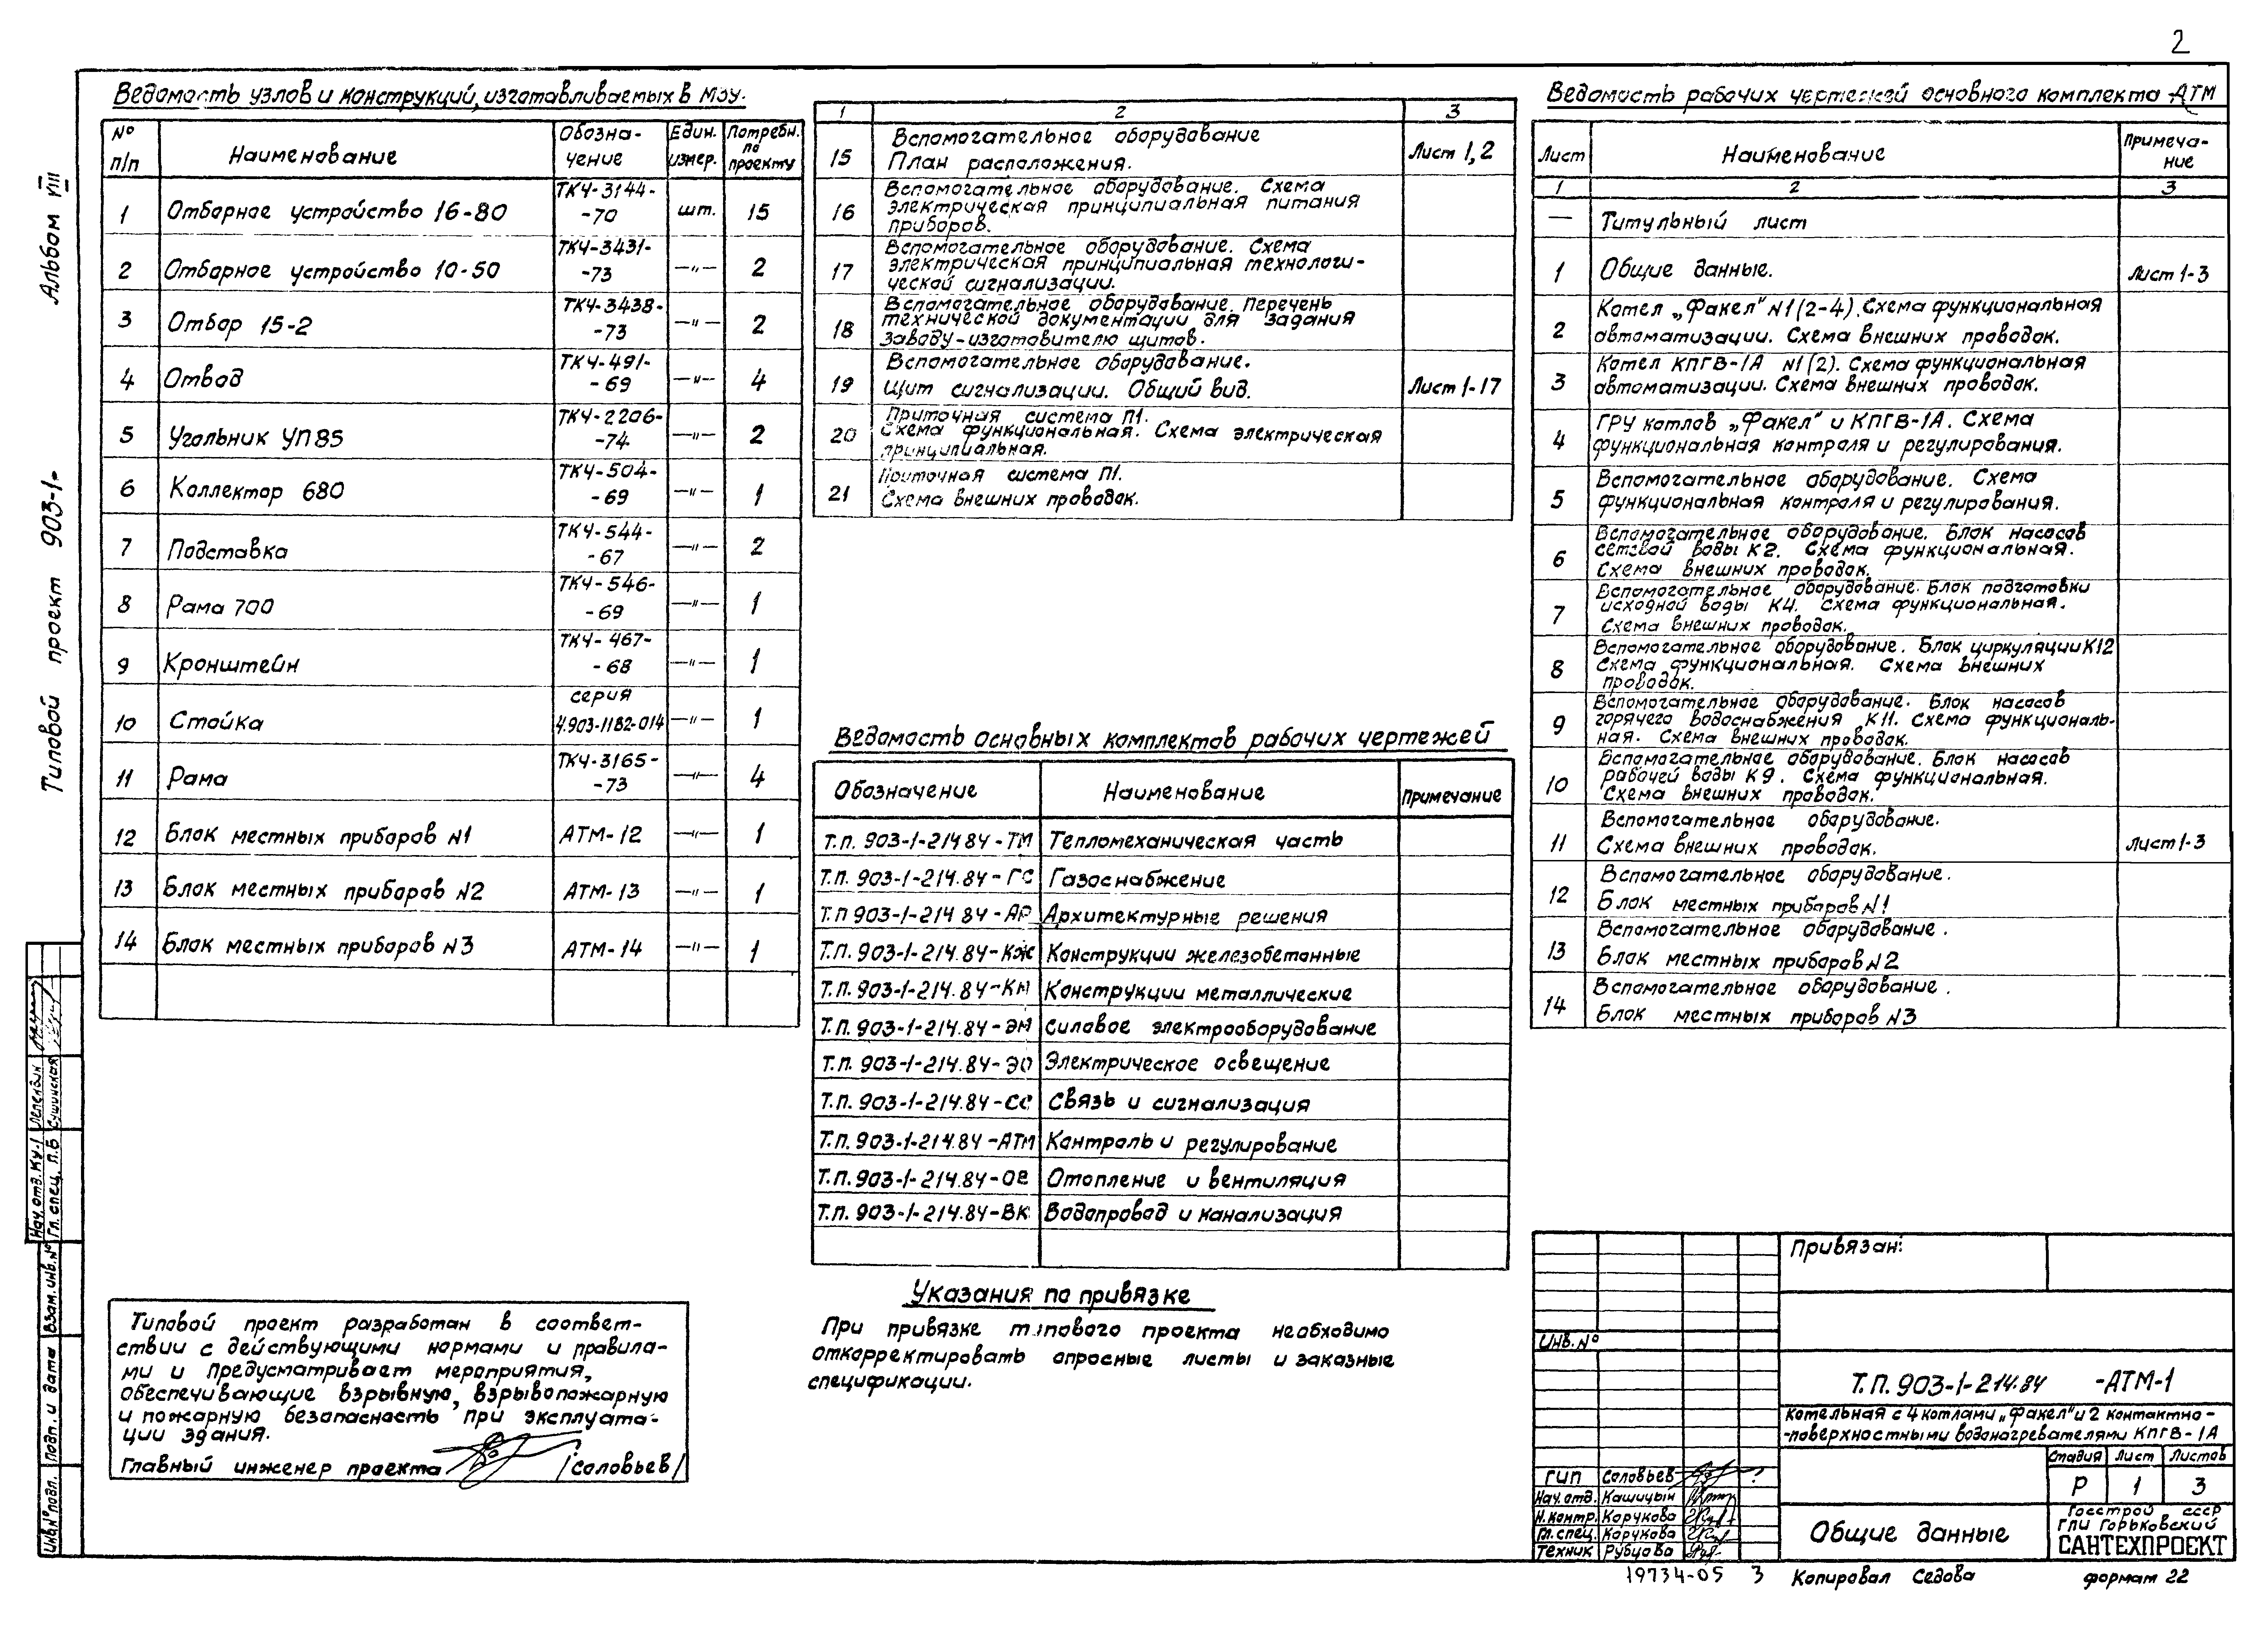 2
Альбом VIII
Типовой проект 903-1-
Ведомость узлов и конструкций, изготавливаемых в МЗУ.
№ п/п Наименование Обозна-чение Един. измер. Потребн. по проекту
1 Отборное устройство 16-80 ТКЧ-3144--70 шт. 15
2 Отборное устройство 10-50 ТКЧ-3431--73 —"— 2
3 Отбор 15-2 ТКЧ-3438--73 —"— 2
4 Отвод ТКЧ-491--69 —"— 4
5 Угольник УП85 ТКЧ-2206--74 —"— 2
6 Коллектор 680 ТКЧ-504--69 —"— 1
7 Подставка ТКЧ-544--67 —"— 2
8 Рама 700 ТКЧ-546--69 —"— 1
9 Кронштейн ТКЧ-467--68 —"— 1
10 Стойка серия 4.903-11В2-014 —"— 1
11 Рама ТКЧ-3165--73 —"— 4
12 Блок местных приборов №1 АТМ-12 —"— 1
13 Блок местных приборов №2 АТМ-13 —"— 1
14 Блок местных приборов №3 АТМ-14 —"— 1
Типовой проект разработан в соответ-
ствии с действующими нормами и правила-
ми и предусматривает мероприятия,
обеспечивающие взрывную, взрывопожарную
и пожарную безопасность при эксплуата-
ции здания.
Главный инженер проекта /Соловьев/
1 2 3
15 Вспомогательное оборудование
План расположения. Лист 1,2
16 Вспомогательное оборудование. Схема
электрическая принципиальная питания
приборов.
17 Вспомогательное оборудование. Схема
электрическая принципиальная технологи-
ческой сигнализации.
18 Вспомогательное оборудование. Перечень
технической документации для задания
заводу-изготовителю щитов.
19 Вспомогательное оборудование.
Щит сигнализации. Общий вид. Лист 1-17
20 Приточная система П1.
Схема функциональная. Схема электрическая
принципиальная.
21 Приточная система П1.
Схема внешних проводок.
Ведомость основных комплектов рабочих чертежей
Обозначение Наименование Примечание
Т.П. 903-1-214.84-ТМ Тепломеханическая часть
Т.П. 903-1-214.84-ГС Газоснабжение
Т.П 903-1-214 84-АР Архитектурные решения
Т.П. 903-1-214.84-КЖ Конструкции железобетонные
Т.П. 903-1-214.84-КМ Конструкции металлические
Т.П. 903-1-214.84-ЭМ Силовое электрооборудование
Т.П. 903-1-214.84-ЭО Электрическое освещение
Т.П. 903-1-214.84-СС Связь и сигнализация
Т.П. 903-1-214.84-АТМ Контроль и регулирование
Т.П. 903-1-214.84-ОВ Отопление и вентиляция
Т.П. 903-1-214.84-ВК Водопровод и канализация
Указания по привязке
При привязке типового проекта необходимо
откорректировать опросные листы и заказные
спецификации.
Ведомость рабочих чертежей основного комплекта АТМ
Лист Наименование Примеча-ние
1 2 3
— Титульный лист
1 Общие данные. Лист 1-3
2 Котел „Факел" №1(2-4). Схема функциональная
автоматизации. Схема внешних проводок.
3 Котел КПГВ-1А №1(2). Схема функциональная
автоматизации. Схема внешних проводок.
4 ГРУ котлов „Факел" и КПГВ-1А. Схема
функциональная контроля и регулирования.
5 Вспомогательное оборудование. Схема
функциональная контроля и регулирования.
6 Вспомогательное оборудование. Блок насосов
сетевой воды К2. Схема функциональная.
Схема внешних проводок.
7 Вспомогательное оборудование. Блок подготовки
исходной воды К4. Схема функциональная.
Схема внешних проводок.
8 Вспомогательное оборудование. Блок циркуляции К12
Схема функциональная. Схема внешних
проводок.
9 Вспомогательное оборудование. Блок насосов
горячего водоснабжения К11. Схема функциональ-
ная. Схема внешних проводок.
10 Вспомогательное оборудование. Блок насосов
рабочей воды К9. Схема функциональная.
Схема внешних проводок.
11 Вспомогательное оборудование.
Схема внешних проводок. Лист 1-3
12 Вспомогательное оборудование.
Блок местных приборов №1
13 Вспомогательное оборудование.
Блок местных приборов №2
14 Вспомогательное оборудование.
Блок местных приборов №3
Привязан:
Инв. №
Т.П. 903-1-214.84 -АТМ-1
Котельная с 4 котлами „Факел" и 2 контактно-
-поверхностными водонагревателями КПГВ-1А
Стадия Лист Листов
Р 1 3
ГИП Соловьев
Нач. отд. Кашицын
Н. контр. Корчкова
Гл. спец. Корчкова
Техник Рубцова
Общие данные
Госстрой СССР
ГПИ Горьковский
САНТЕХПРОЕКТ
19734-05 3 Копировал Седова формат 22
Нач. отд. КУ-1 Лепендин
Гл. спец. П.Б Сушинская
Инв. № подл. Подп. и дата Взам. инв. №